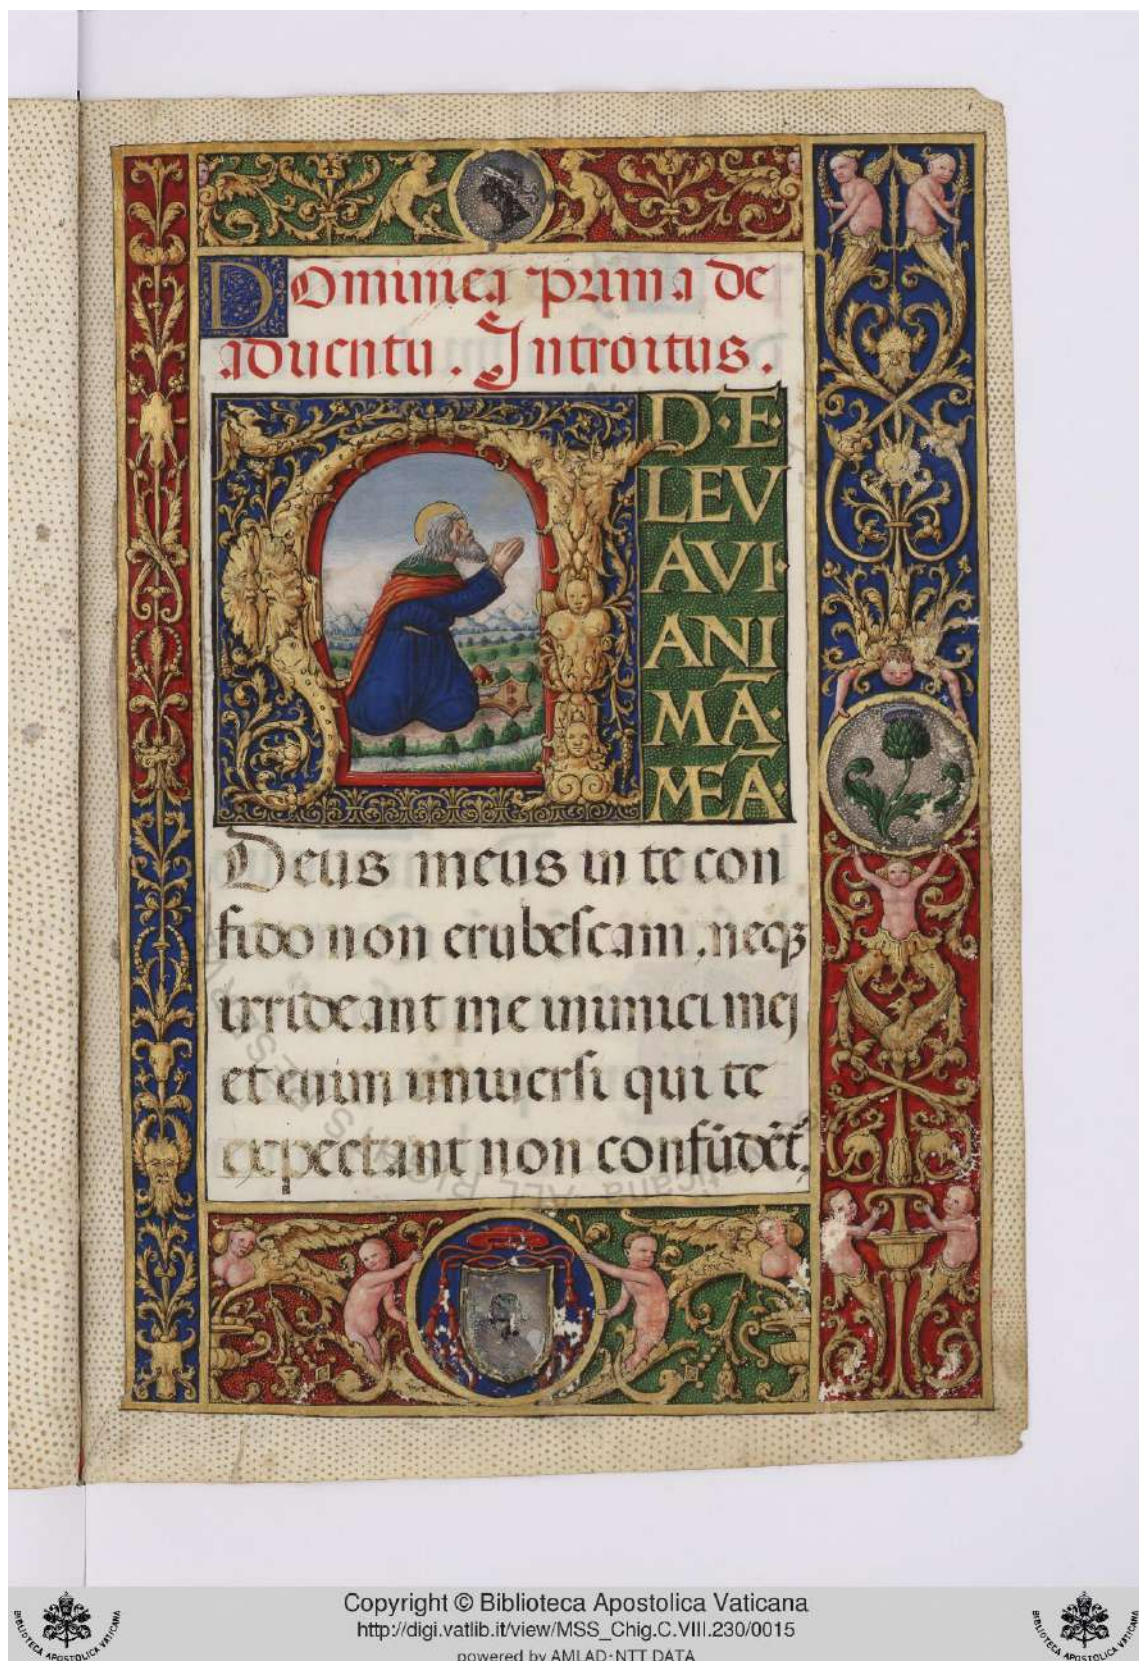 Dominica prima de
aduentu. Introitus.
AD·TE
LEV
AVI·
ANI
MĀ·
MEĀ·
Deus meus in te con
fido non erubescam, neqȝ
irrideant me inimici mej
etenim uniuersi qui te
expectant non confūdēt̄.
Copyright © Biblioteca Apostolica Vaticana
http://digi.vatlib.it/view/MSS_Chig.C.VIII.230/0015
powered by AMLAD-NTT DATA
BIBLIOTECA APOSTOLICA VATICANA
BIBLIOTECA APOSTOLICA VATICANA